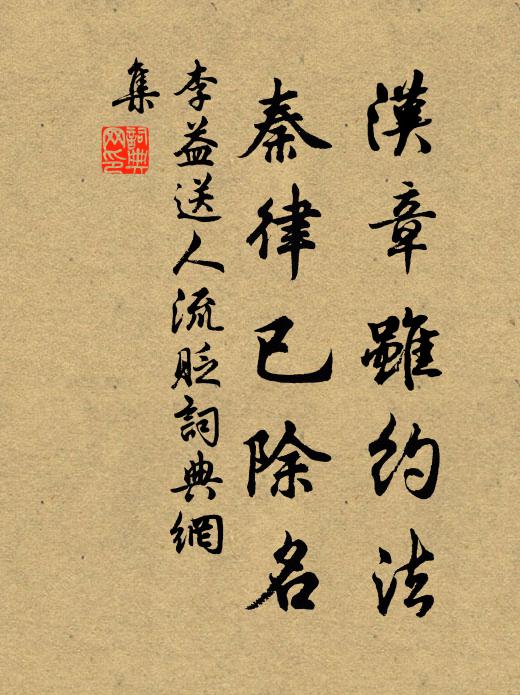 漢章雖約法
秦律已除名
李益送人流貶詞典網
集
詞典
网印